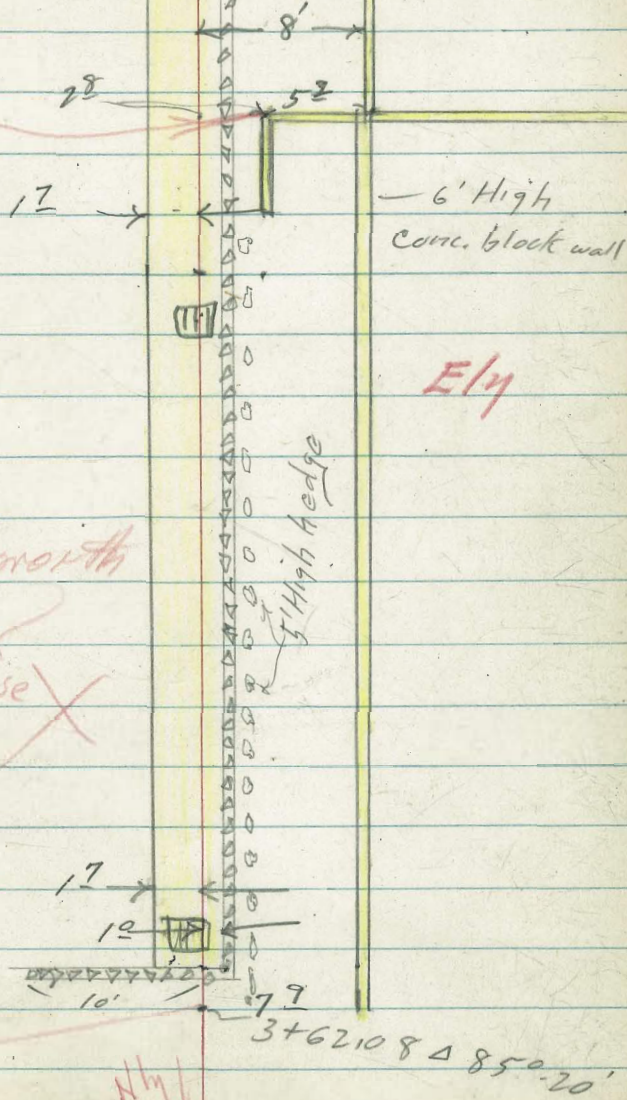 8'
2 8
5 2
1 7
6' High
Conc. block wall
E/y
5' High Hedge
north
se
1 7
1 0
10'
7 9
3+62.08 Δ 85°-20'